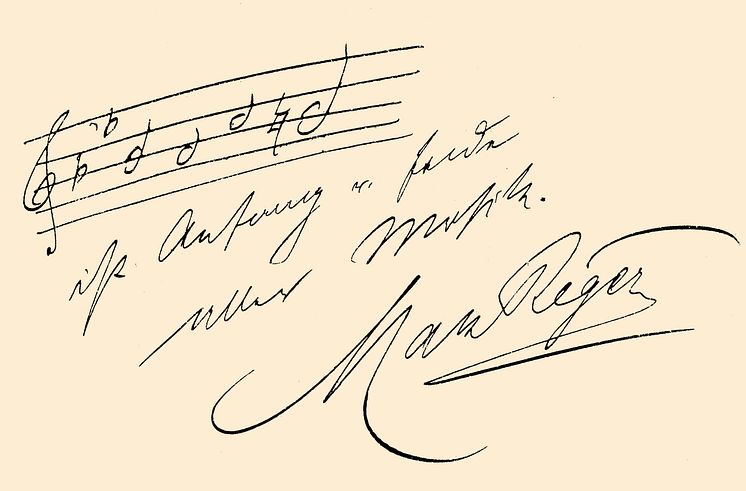 ist Anfang u. Ende
aller Musik.
Max Reger